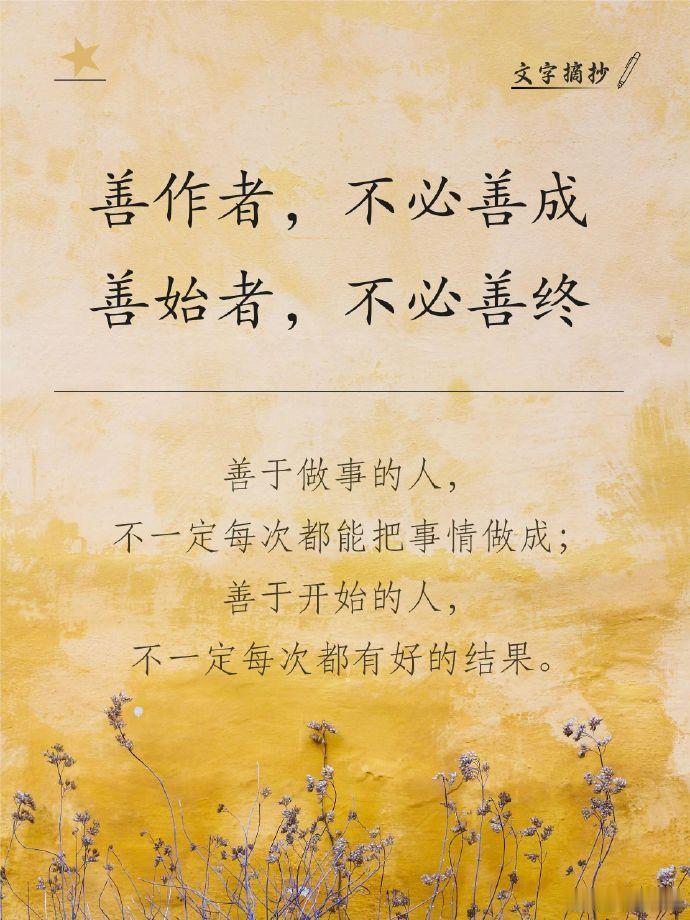 文字摘抄
善作者，不必善成
善始者，不必善终
善于做事的人，
不一定每次都能把事情做成；
善于开始的人，
不一定每次都有好的结果。